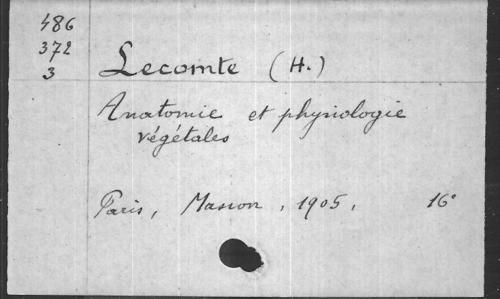 486
372
3
Lecomte (H.)
Anatomie et physiologie
végétales
Paris, Masson, 1905, 16°